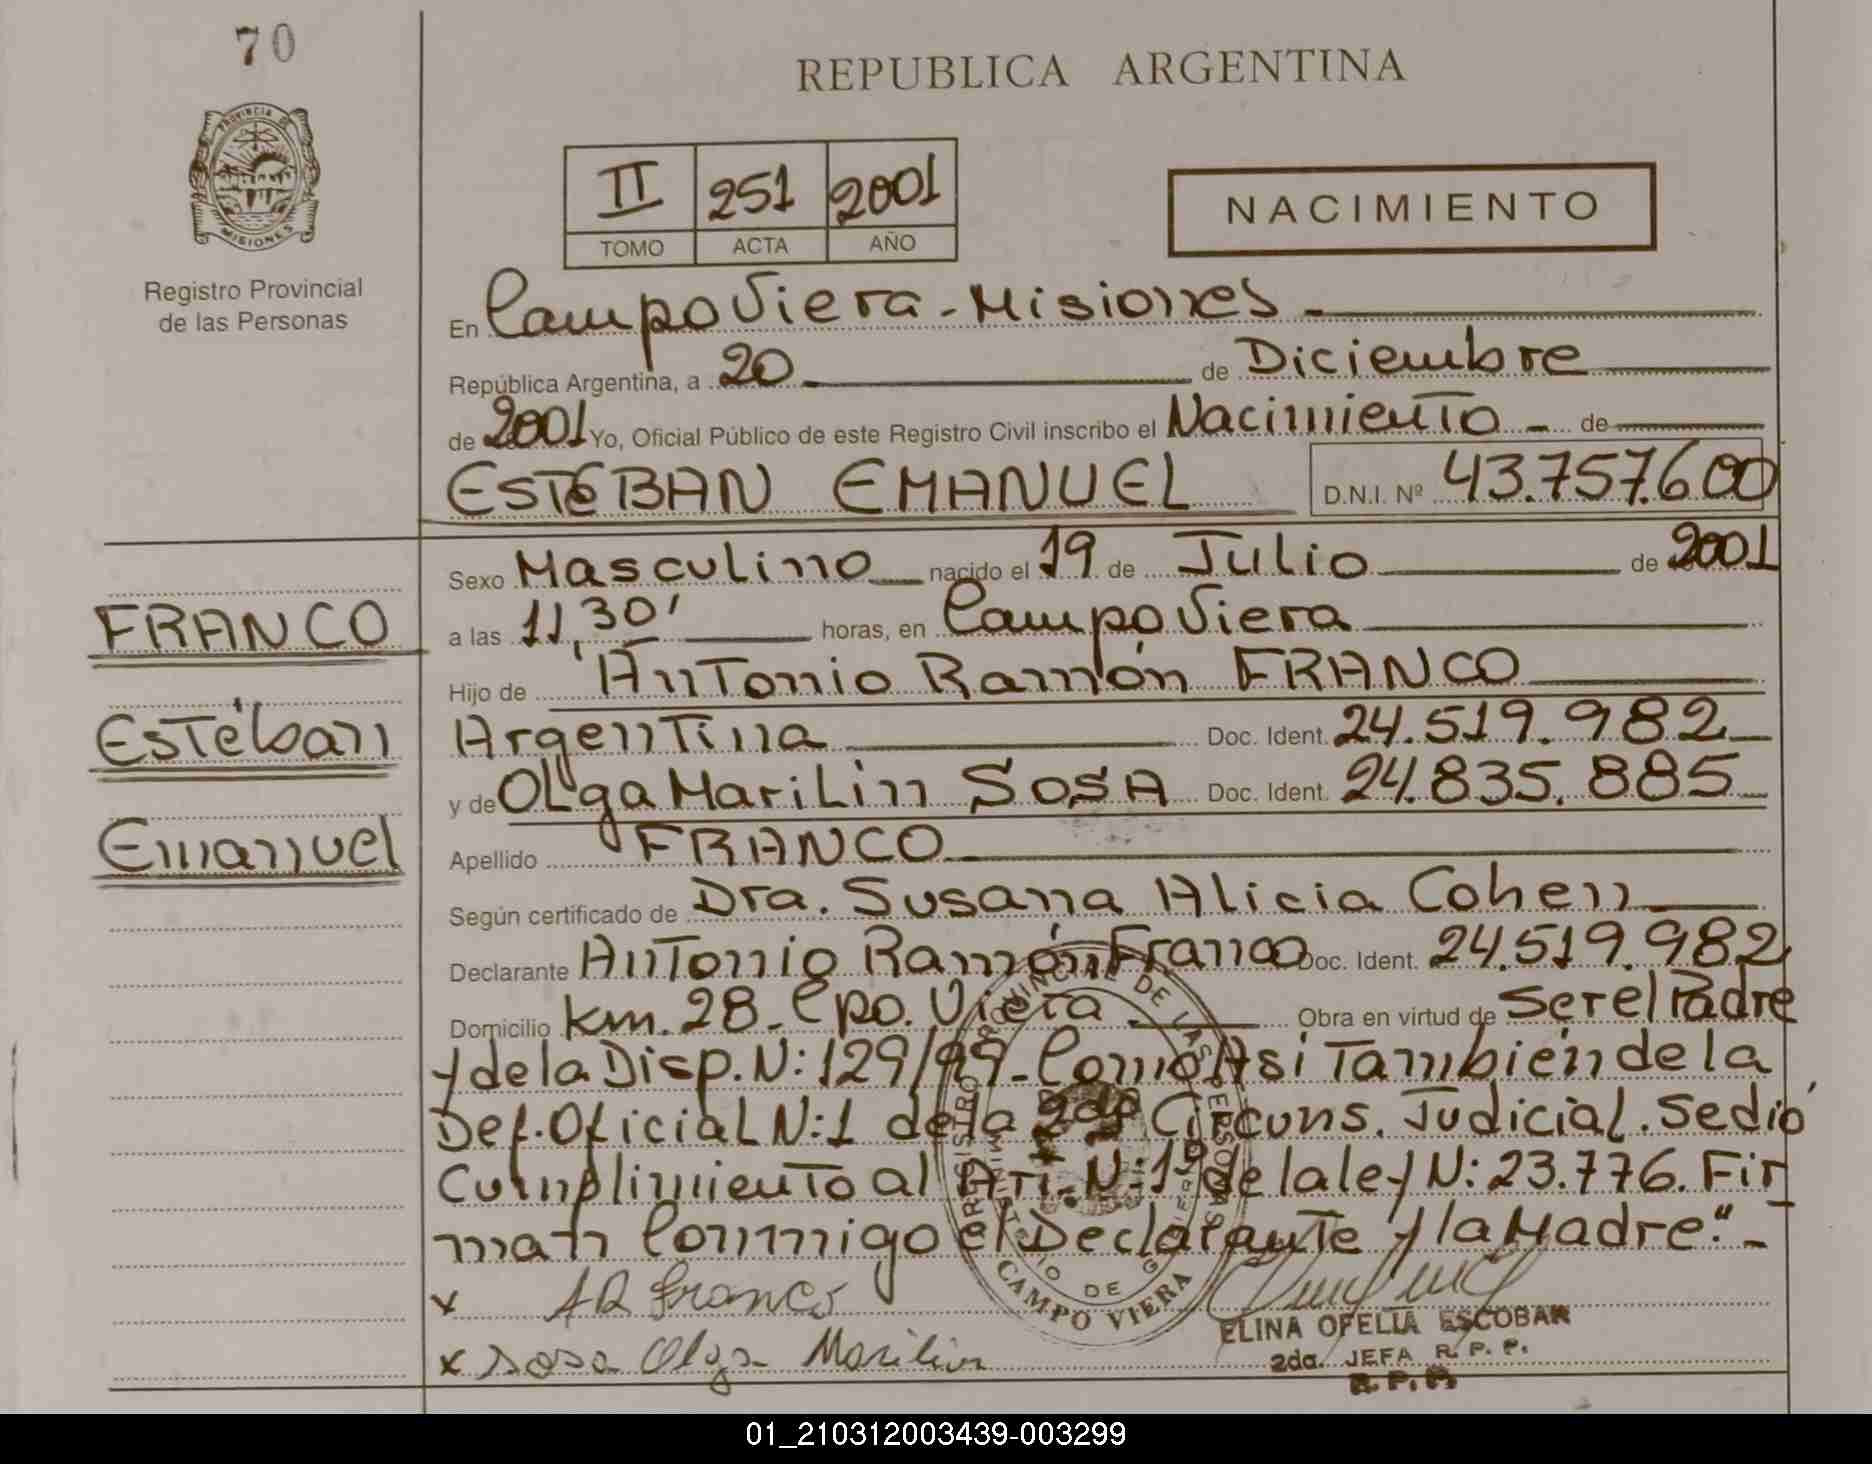 70
REPUBLICA ARGENTINA
PROVINCIA DE
MISIONES
Registro Provincial
de las Personas
II 251 2001
TOMO ACTA AÑO
NACIMIENTO
En Campo Viera - Misiones
República Argentina, a 20 de Diciembre
de 2001 Yo, Oficial Público de este Registro Civil inscribo el Nacimiento de
ESTEBAN EMANUEL D.N.I. Nº 43.757.600
Sexo Masculino nacido el 19 de Julio de 2001
FRANCO
a las 11,30' horas, en Campo Viera
Hijo de Antonio Ramón FRANCO
Estéban
Argentina Doc. Ident. 24.519.982
y de Olga Marilin SOSA Doc. Ident. 24.835.885
Emanuel
Apellido FRANCO
Según certificado de Dra. Susana Alicia Cohen
Declarante Antonio Ramón Franco Doc. Ident. 24.519.982
Domicilio Km. 28 - Cpo. Viera Obra en virtud de ser el Padre
y de la Disp. N: 129/99 - Como Asi También de la
Def. Oficial N:1 de la 2da Circuns. Judicial. Se dió
Cumplimiento al Art. N: 1º de la ley N: 23.776. Fir
man Conmigo el Declarante y la Madre." -
REGISTRO PROVINCIAL DE LAS PERSONAS
MINISTERIO DE GOBIERNO
CAMPO VIERA
x AR Franco
x Sosa Olga Marilin
ELINA OFELIA ESCOBAR
2da. JEFA R. P. P.
R. P. P.
01_210312003439-003299